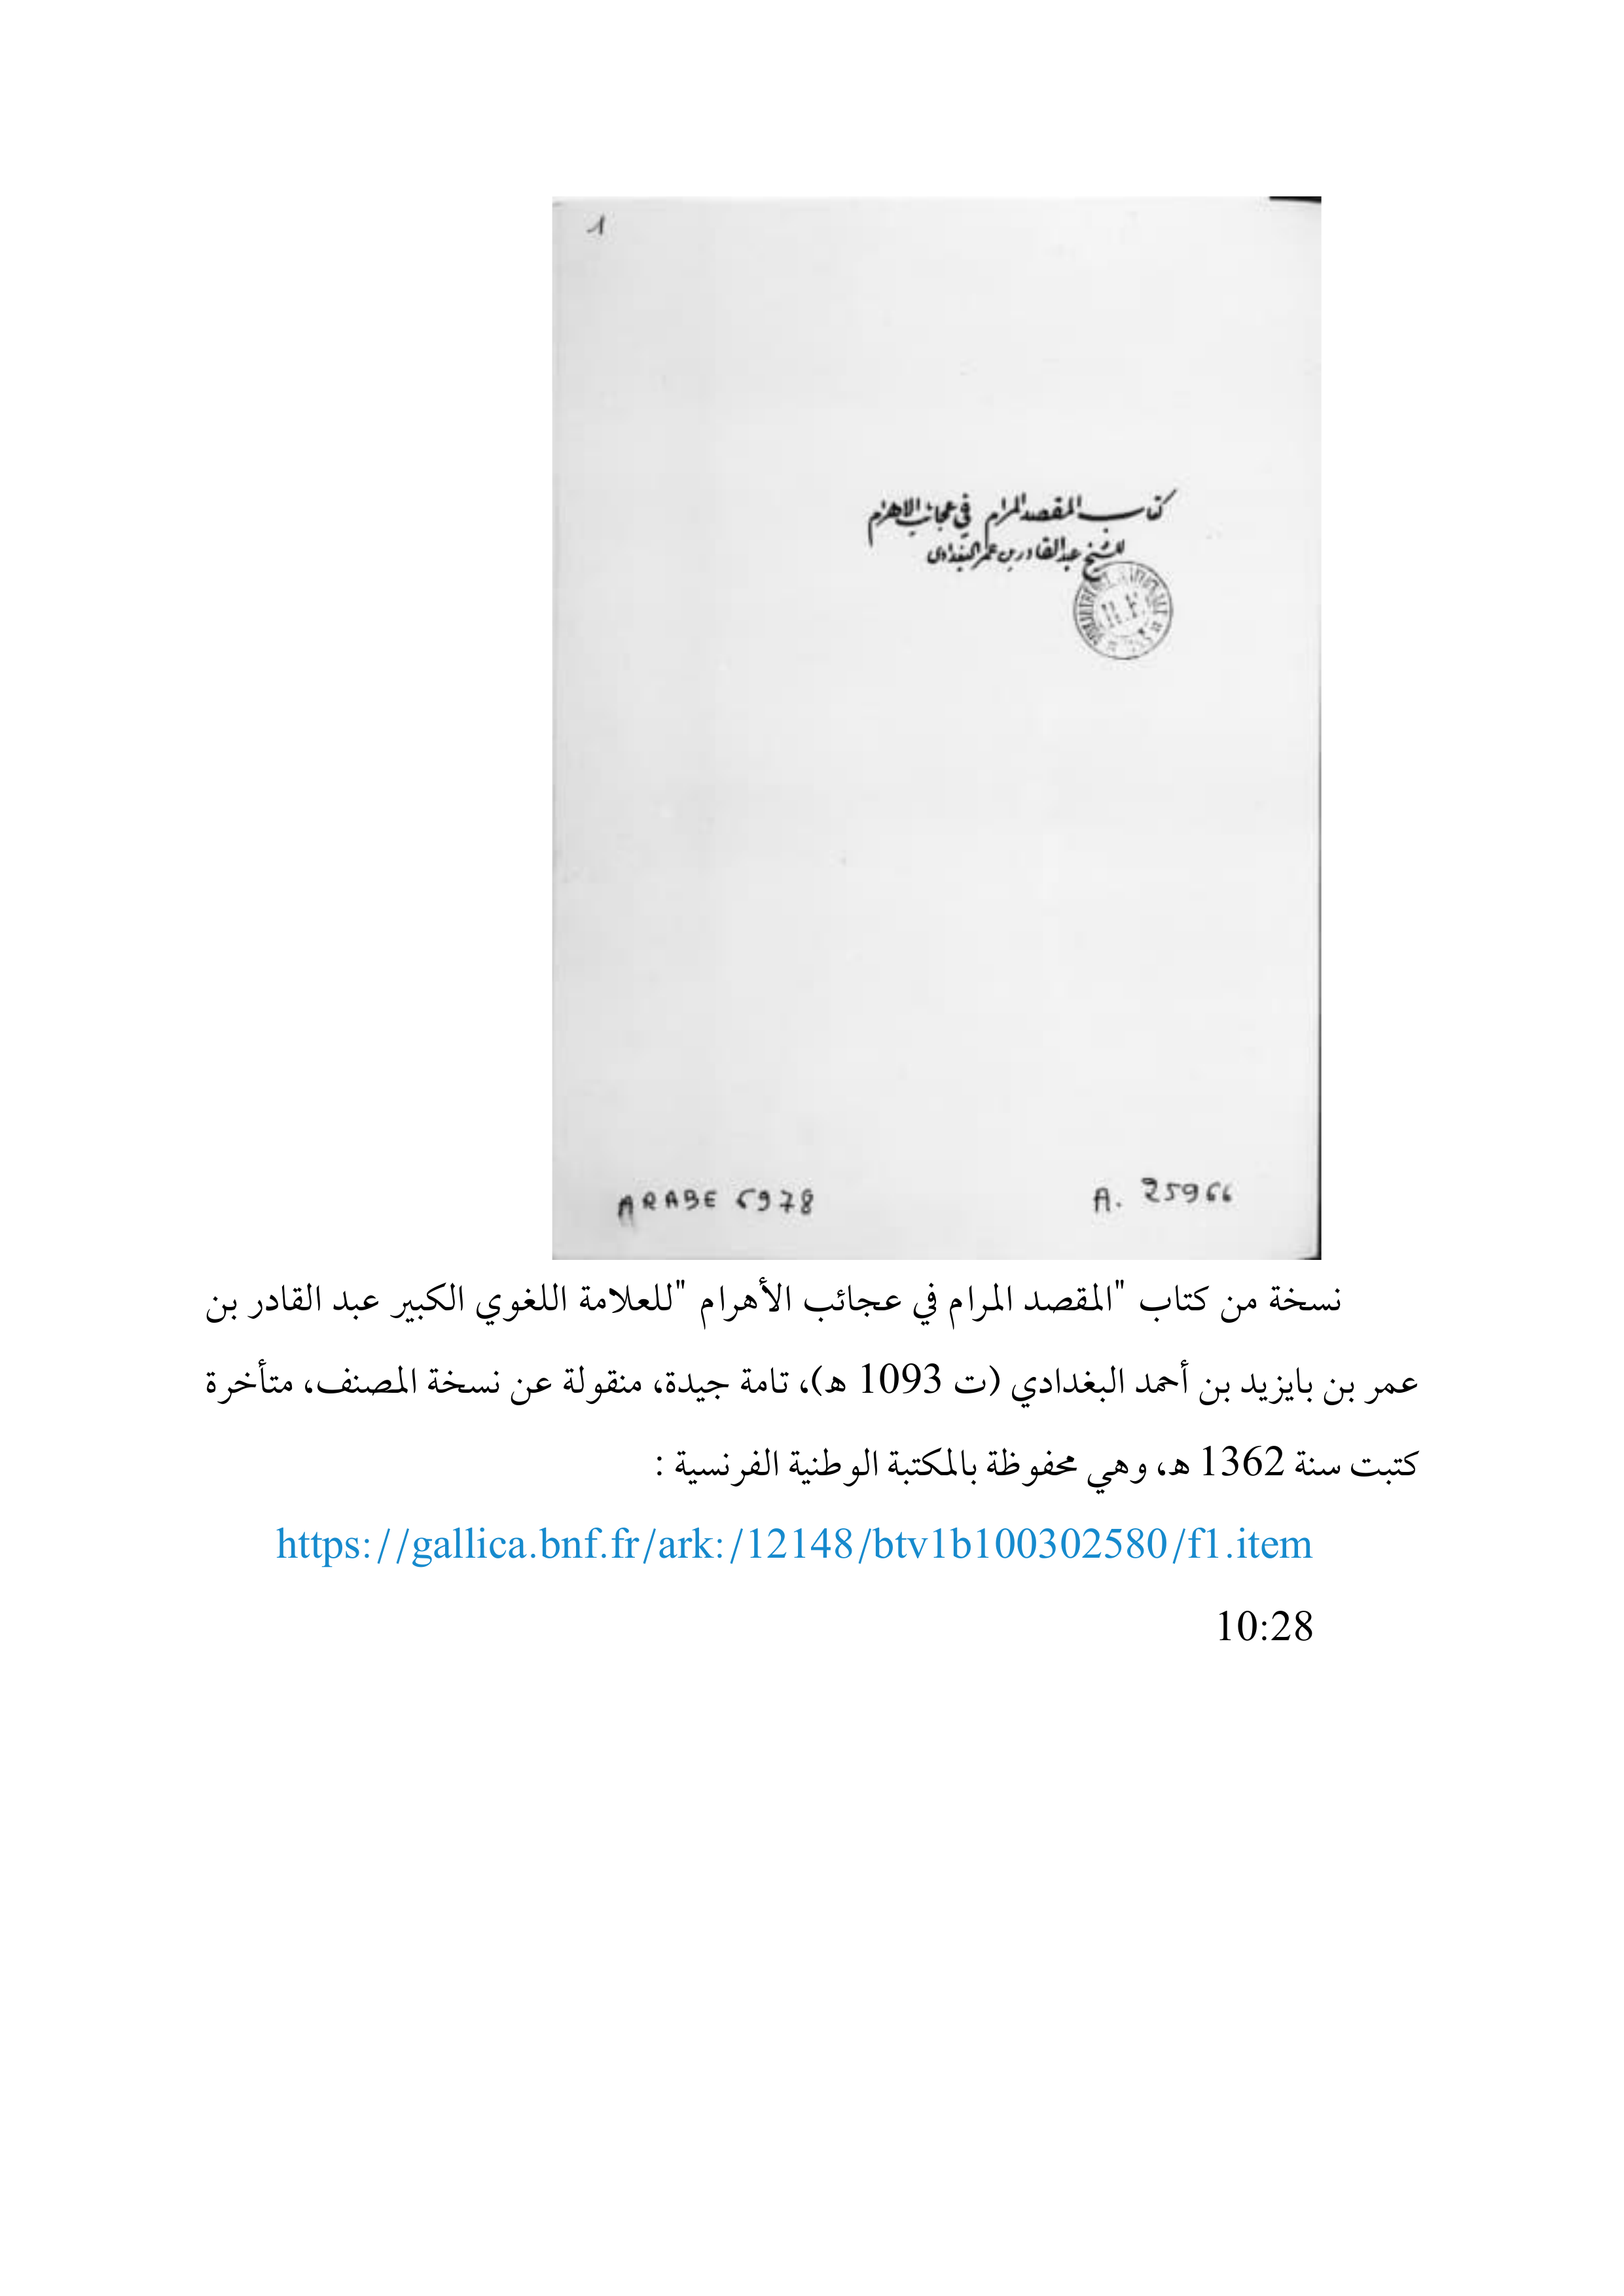 1
كتاب المقصد المرام في عجائب الاهرام
للشيخ عبد القادر بن عمر البغدادى
ARABE 6978
A. 25966
نسخة من كتاب "المقصد المرام في عجائب الأهرام "للعلامة اللغوي الكبير عبد القادر بن
عمر بن بايزيد بن أحمد البغدادي (ت 1093 هـ)، تامة جيدة، منقولة عن نسخة المصنف، متأخرة
كتبت سنة 1362 هـ، وهي محفوظة بالمكتبة الوطنية الفرنسية :
https://gallica.bnf.fr/ark:/12148/btv1b100302580/f1.item
10:28